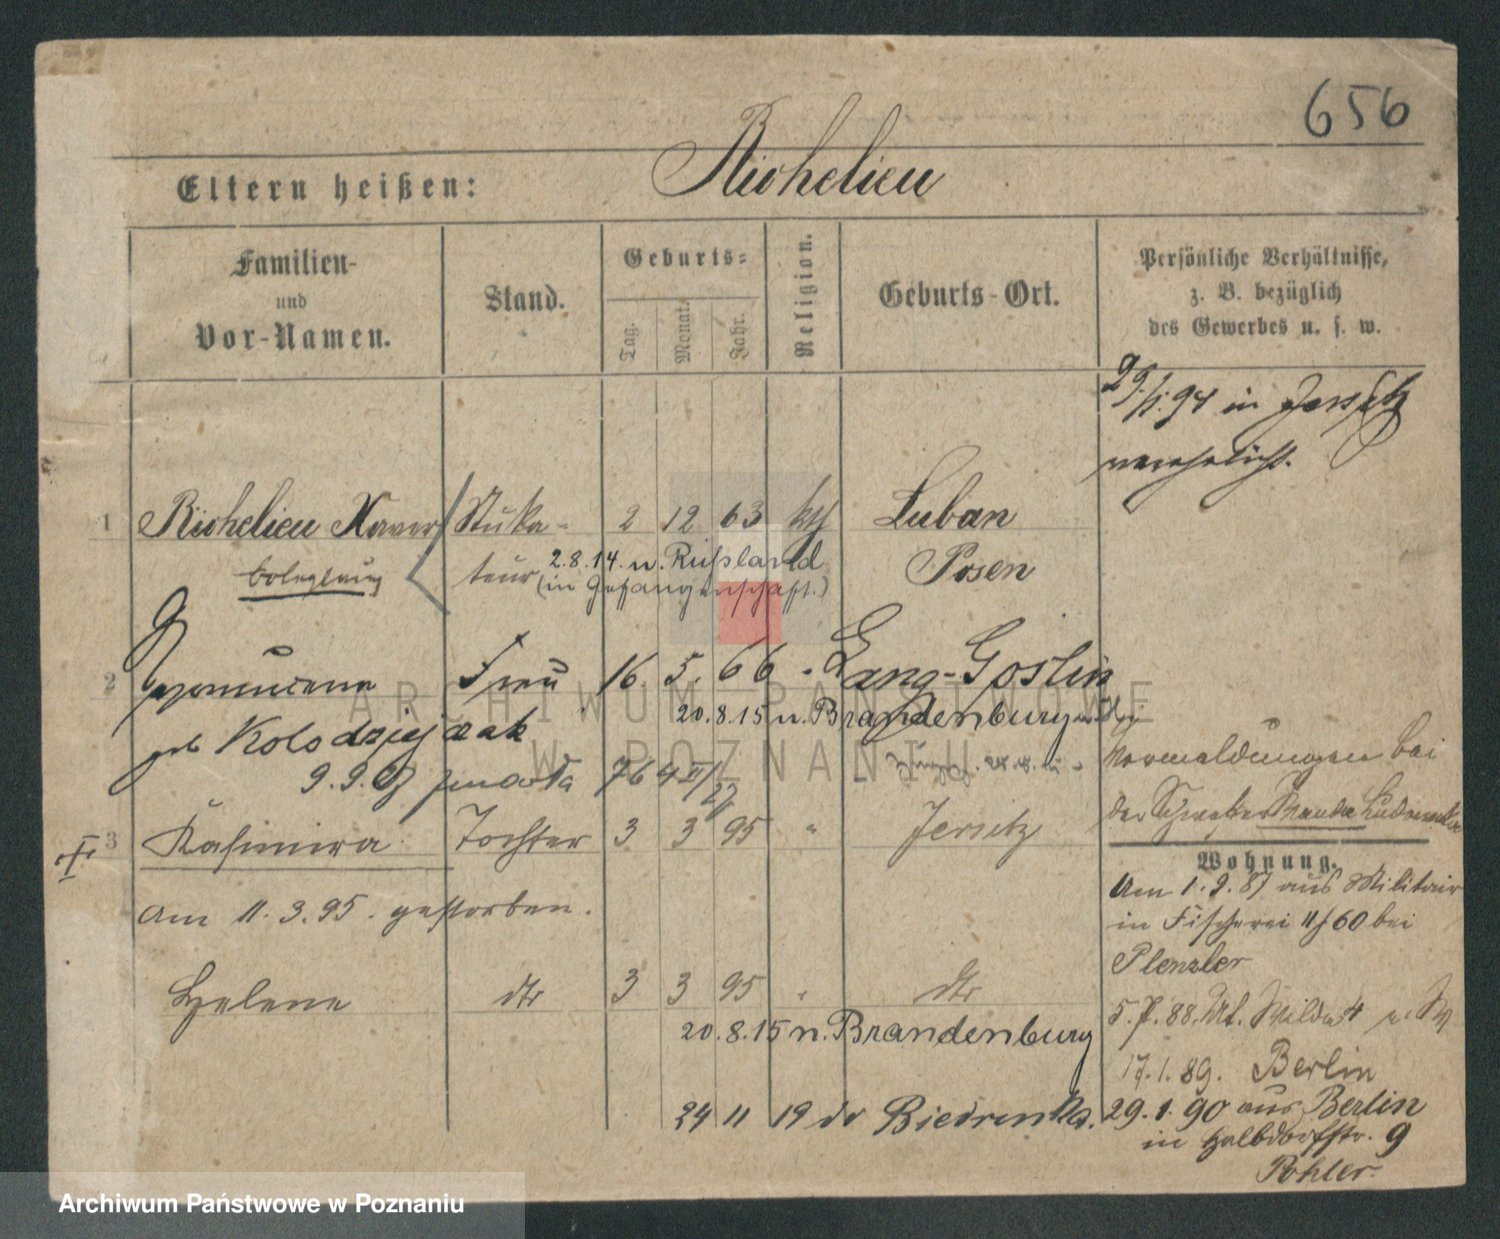 656
Eltern heißen: Richelieu
Familien- und Vor-Namen.
Stand.
Geburts-
Tag. Monat. Jahr.
Religion.
Geburts-Ort.
Persönliche Verhältnisse,
z. B. bezüglich
des Gewerbes u. s. w.
29. 94 in Jersitz
verehelicht.
1 Richelieu Xaver Stuka- 2 12 63 kth Luban
teur 2.8.14. n. Rußland Posen
(in Gefangenschaft.)
2 Nepomucena Frau 16. 5. 66 " Lang-Goslin
20.8.15 n. Brandenburg
geb Kolodziejczak
9.9.
Vormeldungen bei
der Schwester Wanda
3 Kasimira Tochter 3 3 95 " Jersitz
Am 11.3.95. gestorben.
Wohnung.
Am 1.9.87 aus Militair
in Fischerei 11/60 bei
Plenzler
Helene dto 3 3 95 " dto
20.8.15 n. Brandenburg
5.7.88. Wilda 4
17.1.89. Berlin
24 11 19 Biedrusko.
29.1.90 aus Berlin
in Halbdorfstr. 9
Pohler.
ARCHIWUM PAŃSTWOWE
W POZNANIU
Archiwum Państwowe w Poznaniu